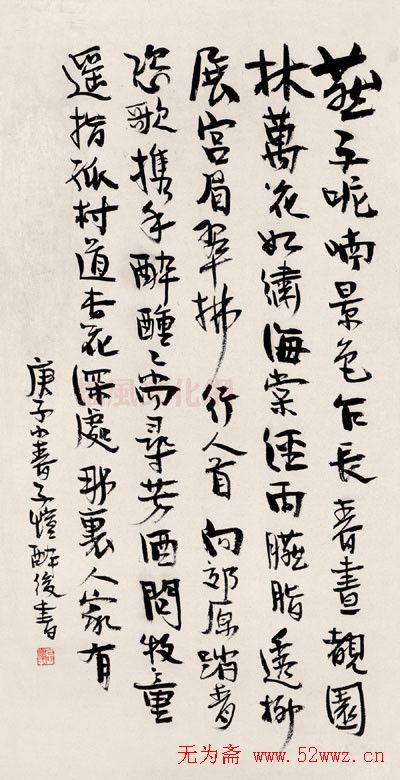 燕子呢喃景色乍長春晝覩園
林萬花如繡海棠經雨臙脂透柳
展宮眉翠拂行人首向郊原踏青
恣歌携手醉醺々尚尋芳酒問牧童
遥指孤村道杏花深處那裏人家有
庚子小春子愷醉後書
无为斋 www.52wwz.cn